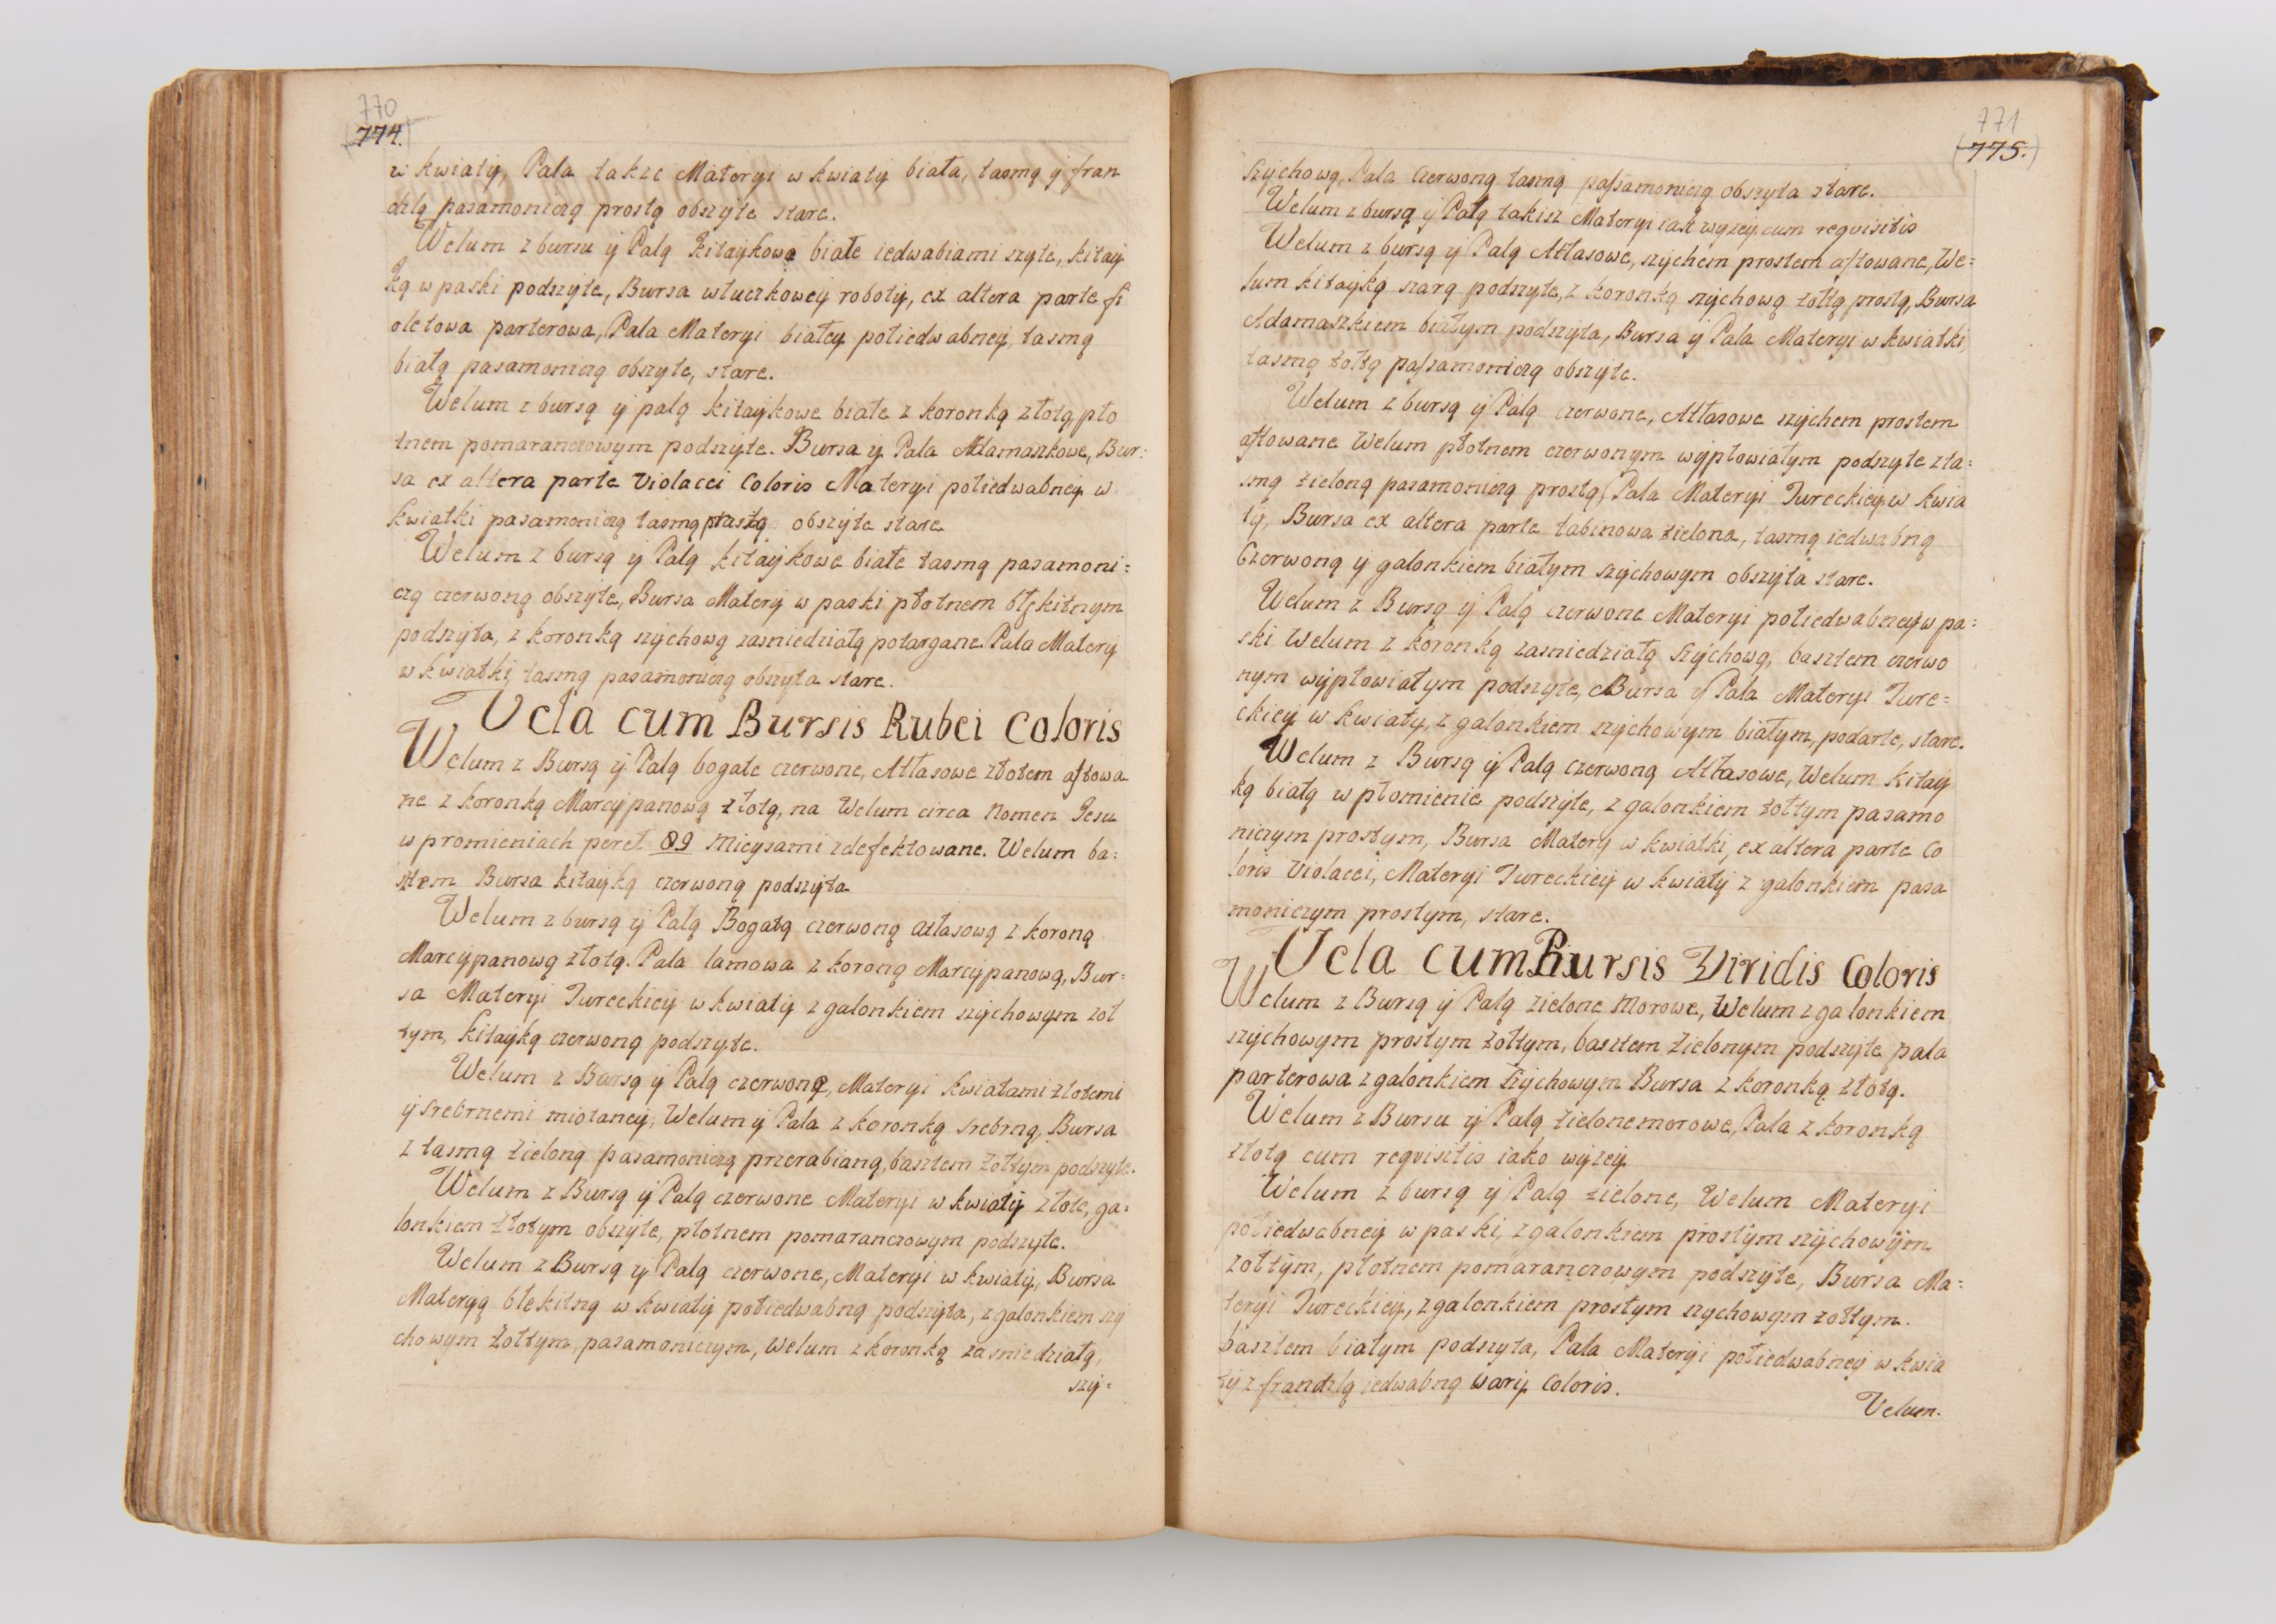 770
774.
w kwiaty, Pala takze Materyi w kwiaty biała, tasmą y fran
dzlą pasamoniczą prostą obszyte stare.
Welum z bursu y Palą kitaykowe białe iedwabiami szyte, kitay
ką w paski podszyte, Bursa włuczkowey roboty, ex altera parte fi
oletowa parterowa, Pala Materyi białey połiedwabney, tasmą
białą pasamoniczą obszyte, stare.
Welum z bursą y palą kitaykowe białe z koronką złotą, pło
tnem pomaranczowym podszyte. Bursa y Pala Adamaszkowe, Bur:
sa ex altera parte Violacei Coloris Materyi połiedwabney w
kwiatki pasamoniczą tasmą prostą obszyte stare
Welum z bursą y Palą kitaykowe białe tasmą pasamoni:
czą czerwoną obszyte, Bursa Matery w paski płotnem błękitnym
podszyta, z koronką szychową zasniedziałą potargane. Pala Matery
w kwiatki, tasmą pasamoniczą obszyta stare.
Vela cum Bursis Rubei Coloris
Welum z Bursą y Palą bogate czerwone, Atłasowe złotem aftowa
ne z koronką Marcypanową złotą, na Welum circa Nomen Jesu
w promieniach pereł 89 Mieysami zdefektowane. Welum ba:
sztem Bursa kitayką czerwoną podszyta
Welum z bursą y Palą Bogatą czerwoną atłasową z koroną
Marcypanową złotą. Pala lamowa z koroną Marcypanową, Bur:
sa Materyi Tureckiey w kwiaty z galonkiem szychowym żoł
tym, kitayką czerwoną podszyte.
Welum z Bursą y Palą czerwone, Materyi kwiatami złotemi
y srebrnemi miotaney, Welum y Pala z koronką srebrną, Bursa
z tasmą zieloną pasamoniczą przerabianą, basztem żołtym podszyte.
Welum z Bursą y Palą czerwone Materyi w kwiaty złote, ga:
lonkiem złotym obszyte, płotnem pomaranczowym podszyte.
Welum z Bursą y Palą czerwone, Materyi w kwiaty, Bursa
Materyą błekitną w kwiaty połiedwabną podszyta, z galonkiem szy
chowym żołtym, pasamoniczym, Welum z koronką zasniedziałą,
szy:
771
775.
szychową, Pala czerwoną tasmą passamoniczą obszyta stare.
Welum z bursą y Palą takisz Materyi iak wyzey cum requisitis
Welum z bursą y Palą Atłasowe, szychem prostem aftowane, We:
lum kitayką szarą podszyte, z koronką szychową żołtą prostą, Bursa
Adamaszkiem białym podszyta, Bursa y Pala Materyi w kwiatki,
tasmą żołtą passamoniczą obszyte.
Welum z bursą y Palą czerwone, Atłasowe szychem prostem
aftowane Welum płotnem czerwonym wypłowiałym podszyte z ta:
smą zieloną pasamoniczą prostą, Pala Materyi Tureckiey w kwia
ty, Bursa ex altera parte tabinowa zielona, tasmą iedwabną
Czerwoną y galonkiem białym szychowym obszyta stare.
Welum z Bursą y Palą czerwone Materyi połiedwabney w pa:
ski Welum z koronką zasniedziałą szychową, basztem czerwo
nym wypłowiałym podszyte, Bursa y Pala Materyi Ture:
ckiey w kwiaty, z galonkiem szychowym białym, podarte, stare.
Welum z Bursą y Palą czerwoną Atłasowe, Welum kitay
ką białą w płomienie podszyte, z galonkiem żołtym pasamo
niczym prostym, Bursa Matery w kwiatki, ex altera parte Co
loris Violacei, Materyi Tureckiey w kwiaty z galonkiem pasa
moniczym prostym, stare.
Vela cum Bursis Viridis Coloris
Welum z Bursą y Palą zielone Morowe, Welum z galonkiem
szychowym prostym żołtym, basztem zielonym podszyte pala
parterowa z galonkiem szychowym Bursa z koronką złotą.
Welum z Bursu y Palą zielone morowe, Pala z koronką
złotą cum requisitis iako wyzey
Welum z bursą y Palą zielone, Welum Materyi
połiedwabney w paski, z galonkiem prostym szychowym
żołtym, płotnem pomaranczowym podszyte, Bursa Ma:
teryi Tureckiey, z galonkiem prostym szychowym żołtym.
basztem białym podszyta, Pala Materyi połiedwabney w kwia
ty z frandzlą iedwabną warij Coloris.
Velum.